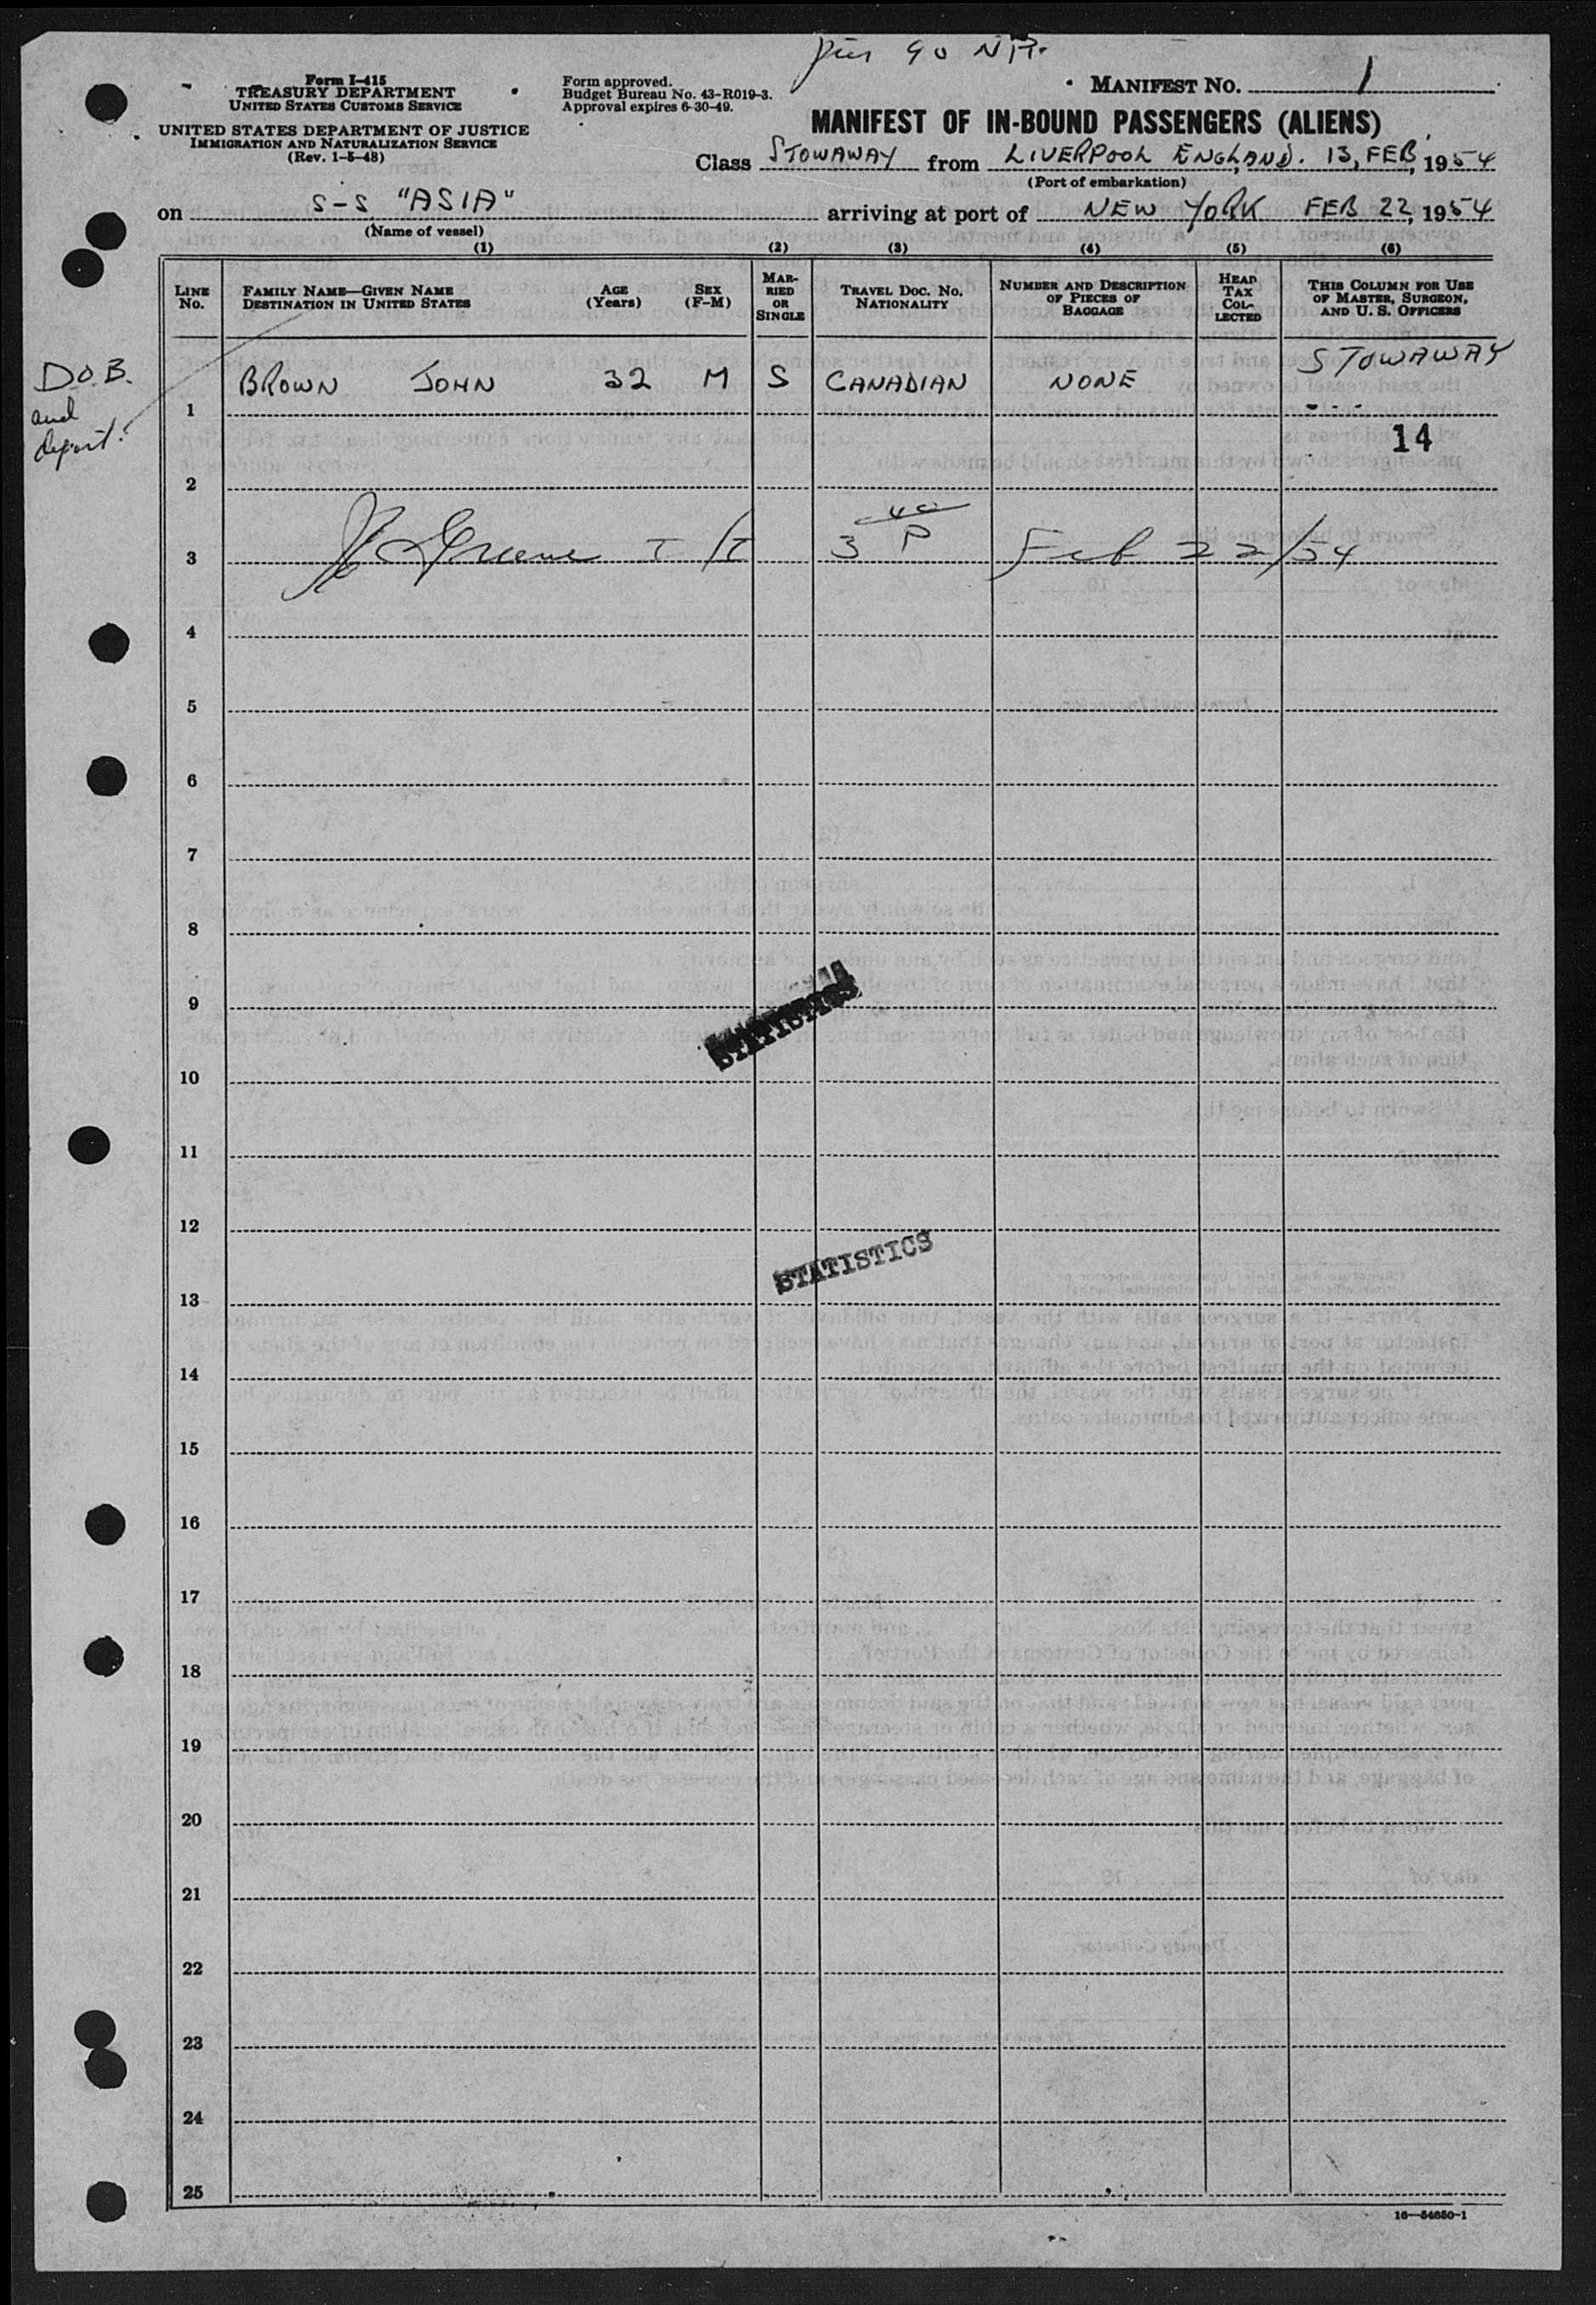 Pier 90 NR.
Form I-415
TREASURY DEPARTMENT
UNITED STATES CUSTOMS SERVICE
UNITED STATES DEPARTMENT OF JUSTICE
IMMIGRATION AND NATURALIZATION SERVICE
(Rev. 1-5-48)
Form approved.
Budget Bureau No. 43-R019-3.
Approval expires 6-30-49.
MANIFEST NO. 1
MANIFEST OF IN-BOUND PASSENGERS (ALIENS)
Class STOWAWAY from LIVERPOOL ENGLAND. 13, FEB, 1954
(Port of embarkation)
on S-S "ASIA" arriving at port of NEW YORK FEB 22, 1954
(Name of vessel)
(1) (2) (3) (4) (5) (6)
LINE No.
FAMILY NAME—GIVEN NAME
DESTINATION IN UNITED STATES
AGE (Years)
SEX (F-M)
MARRIED OR SINGLE
TRAVEL DOC. NO.
NATIONALITY
NUMBER AND DESCRIPTION OF PIECES OF BAGGAGE
HEAD TAX COLLECTED
THIS COLUMN FOR USE OF MASTER, SURGEON, AND U. S. OFFICERS
D.O.B.
and
deport.
1 BROWN JOHN 32 M S CANADIAN NONE STOWAWAY
14
2
3 Greene 3 P Feb 22/54
4
5
6
7
8
9
STATISTICS
10
11
12
STATISTICS
13
14
15
16
17
18
19
20
21
22
23
24
25
16—54650-1